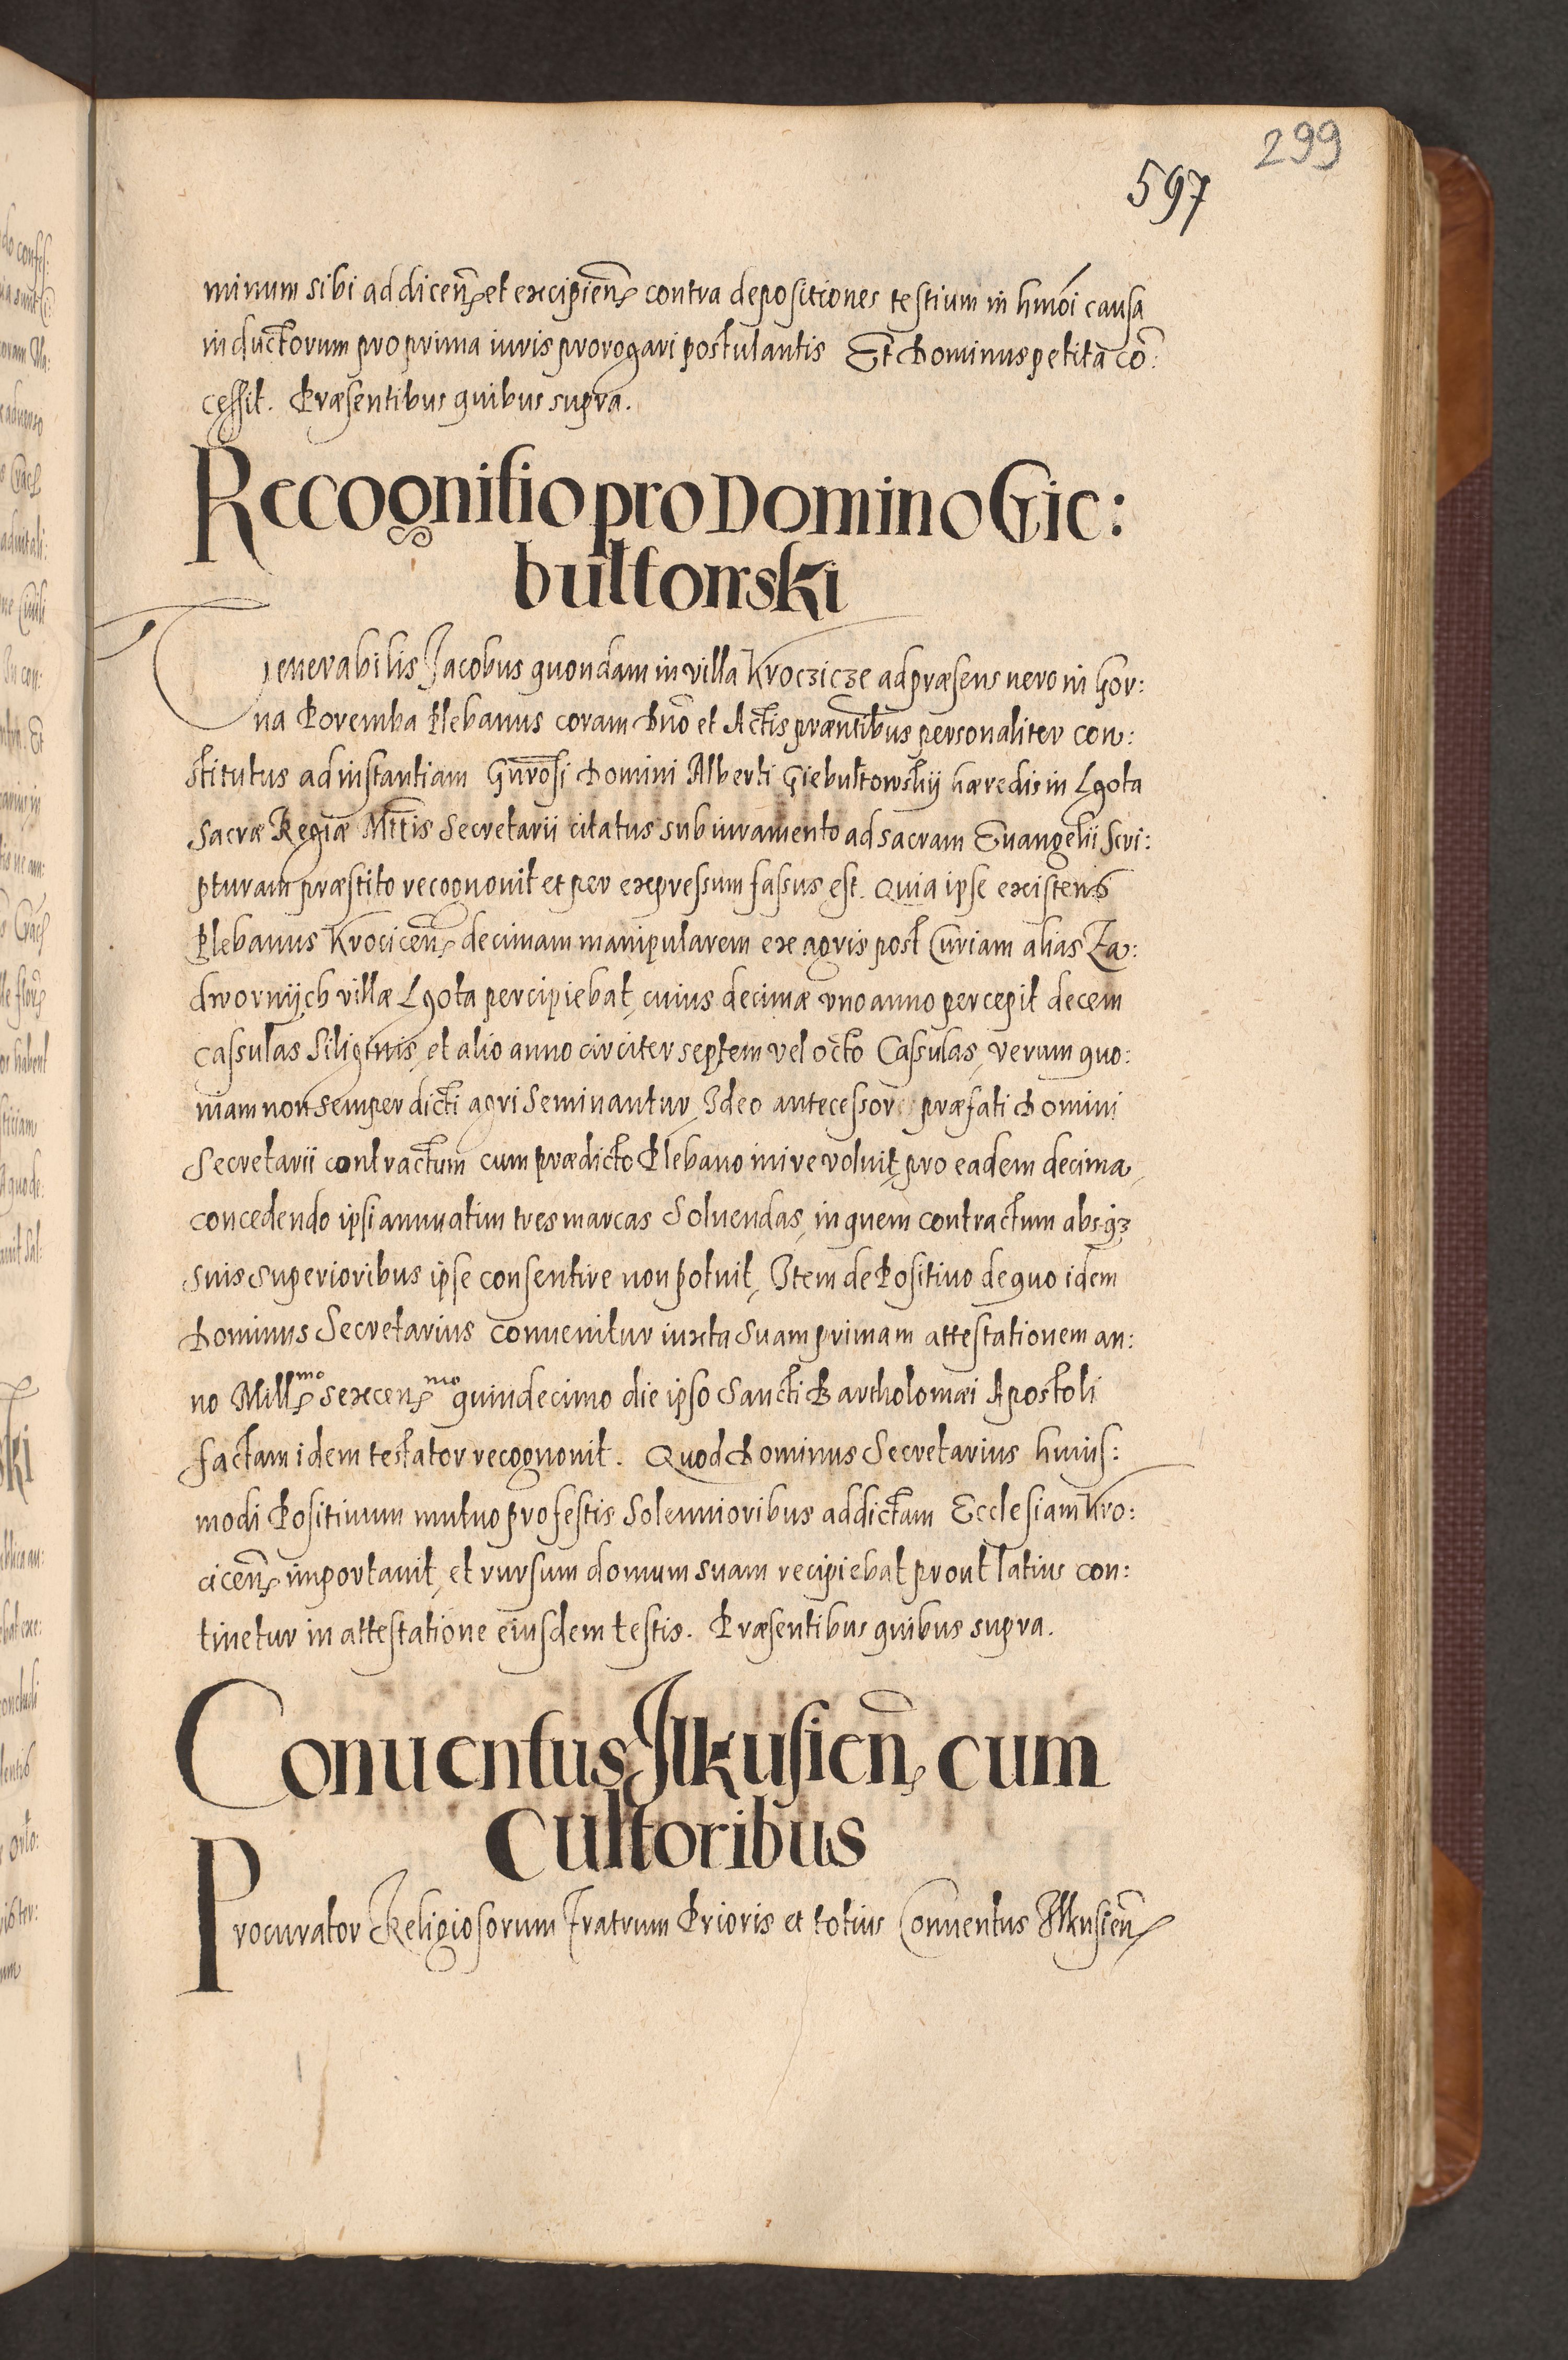 299
597
minum sibi ad dicen̄ et excipien̄ contra depositiones testium in hmōi causa
inductorum pro prima iuris prorogari postulantis Et Dominus petita cō:
cessit. Præsentibus quibus supra.
Recognitio pro Domino Gie:
bultowski
Venerabilis Jacobus quondam in villa Kroczicze ad præsens vero in Gor:
na Poremba Plebanus coram Dn̄o et Actis præntibus personaliter con:
stitutus ad instantiam Gn̄rosi Domini Alberti Giebultowskij hæredis in Lgota
Sacræ Regiæ Mttis Secretarii citatus sub iuramento ad sacram Euangelii Scri:
pturam præstito recognouit et per expressum fassus est. Quia ipse existens
Plebanus Krocicen̄ decimam manipularem ex agris post Curiam alias Za:
dwornÿch villæ Lgota percipiebat, cuius decimæ vno anno percepit decem
cassulas Siliginis, et alio anno circiter septem vel octo Cassulas, verum quo:
niam non semper dicti agri Seminantur, Ideo antecessor præfati Domini
Secretarii contractum cum prædicto Plebano inire voluit, pro eadem decima,
concedendo ipsi annuatim tres marcas Soluendas, in quem contractum absq3
suis superioribus ipse consentire non potuit, Item de Positiuo de quo idem
Dominus Secretarius conuenitur iuxta suam primam attestationem an:
no Millmo sexcenmo quindecimo die ipso Sancti Bartholomæi Apostoli
factam idem testator recognouit. Quod Dominus Secretarius huius:
modi Positiuum mutuo pro festis Solennioribus ad dictam Ecclesiam Kro:
cicen̄ importauit, et rursum domum suam recipiebat prout latius con:
tinetur in attestatione eiusdem testis. Præsentibus quibus supra.
Conuentus Ilkusien̄ cum
Cultoribus
Procurator Religiosorum Fratrum Prioris et totius Conuentus Ilkusien̄